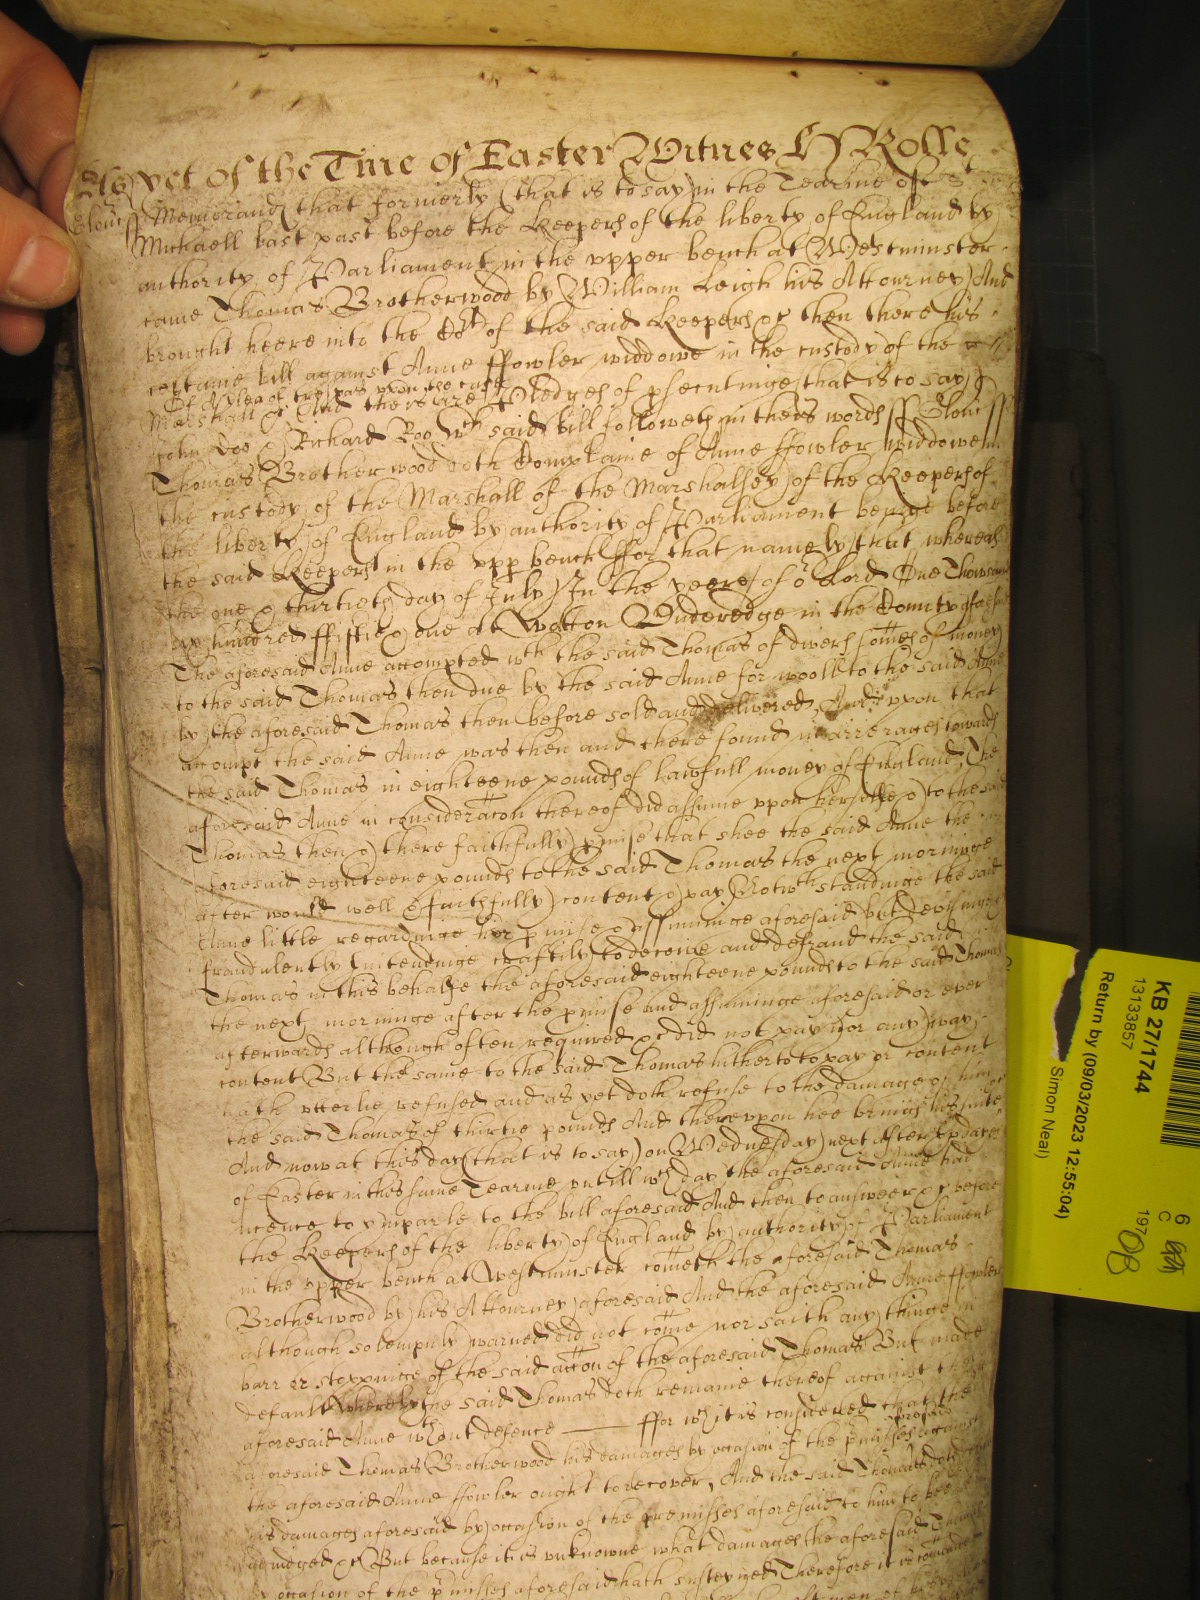 As yet of the Time of Easter Witnes Hy Rolle
Glouc ss Memorand that formerly (that is to say) in the Tearme of St
Michaell last past before the Keepers of the liberty of England by
authority of Parliament in the vpper bench at Westminster
came Thomas Brotherwood by William Leigh his Attourney And
brought heere into the Cort of the said Keepers &c then there his
certaine bill against Anne ffowler widdowe in the custody of the
Of A plea of trespas vpon the case
Marshall &c And there are Pledges of psecutinge (that is to say)
John Doo & Richard Roo wch said bill followeth in theis words ss Glouc ss
Thomas Brotherwood doth Complaine of Anne ffowler widdowe in
the custody of the Marshall of the Marshalsey of the Keepers of
the liberty of England by authority of Parliament beinge before
the said Keepers in the vpp bench ffor that namely that whereas
the one & thirtieth day of July In the yeere of or Lord One Thowsand
six hundred ffiftie & one at Wotton Vnderedge in the County aforesaid
The aforesaid Anne accompted wth the said Thomas of divers somes of money
to the said Thomas then due by the said Anne for wooll to the said Anne
by the aforesaid Thomas then before sold and delivered And vpon that
accompt the said Anne was then and there found in arrerages towards
the said Thomas in eighteene pounds of lawfull money of England The
aforesaid Anne in consideracon thereof did assume vpon her selfe & to the said
Thomas then & there faithfully pmise that shee the said Anne the
foresaid eighteene pounds to the said Thomas the next morninge
after would well & faithfully content & pay Notwthstandinge the said
Anne little regardinge her pmise & assuminge aforesaid but devisinge &
fraudulently intendinge craftily to deceive and defraud the said
Thomas in this behalfe the aforesaid eighteene pounds to the said Thomas
the next morninge after the pmise and assuminge aforesaid or ever
afterwards although often required &c did not pay nor any way
content But the same to the said Thomas hitherto to pay or content
hath vtterlie refused and as yet doth refuse to the damage of him
the said Thomas of thirtie pounds And therevpon hee brings his suite &c
And now at this day (that is to say) on Wednesday next after days
of Easter in this same Tearme vntill wch day the aforesaid Anne had
licence to imparle to the bill aforesaid And then to answeer &c before
the Keepers of the liberty of England by authority of Parliament
in the vpper bench at Westminster cometh the aforesaid Thomas
Brotherwood by his Attourney aforesaid And the aforesaid Anne ffowler
although solempnly warned did not come nor saith any thinge in
barr or stoppinge of the said accon of the aforesaid Thomas But made
default whereby the said Thomas doth remaine thereof against the
aforesaid Anne wthout defence ffor wch it is considered that the
aforesaid Thomas Brotherwood his damages by occasion of the pmisses against
the aforesaid Anne ffowler ought to recover, And the said Thomas doth
his damages aforesaid by occasion of the premisses aforesaid to him to bee
adiudged &c But because it is vnknowne what damages the aforesaid Thomas
by occasion of the pmisses aforesaid hath susteyned Therefore it is comanded
KB 27/1744
13133857
Return by (09/03/2023 12:55:04)
Simon Neal)
6
C